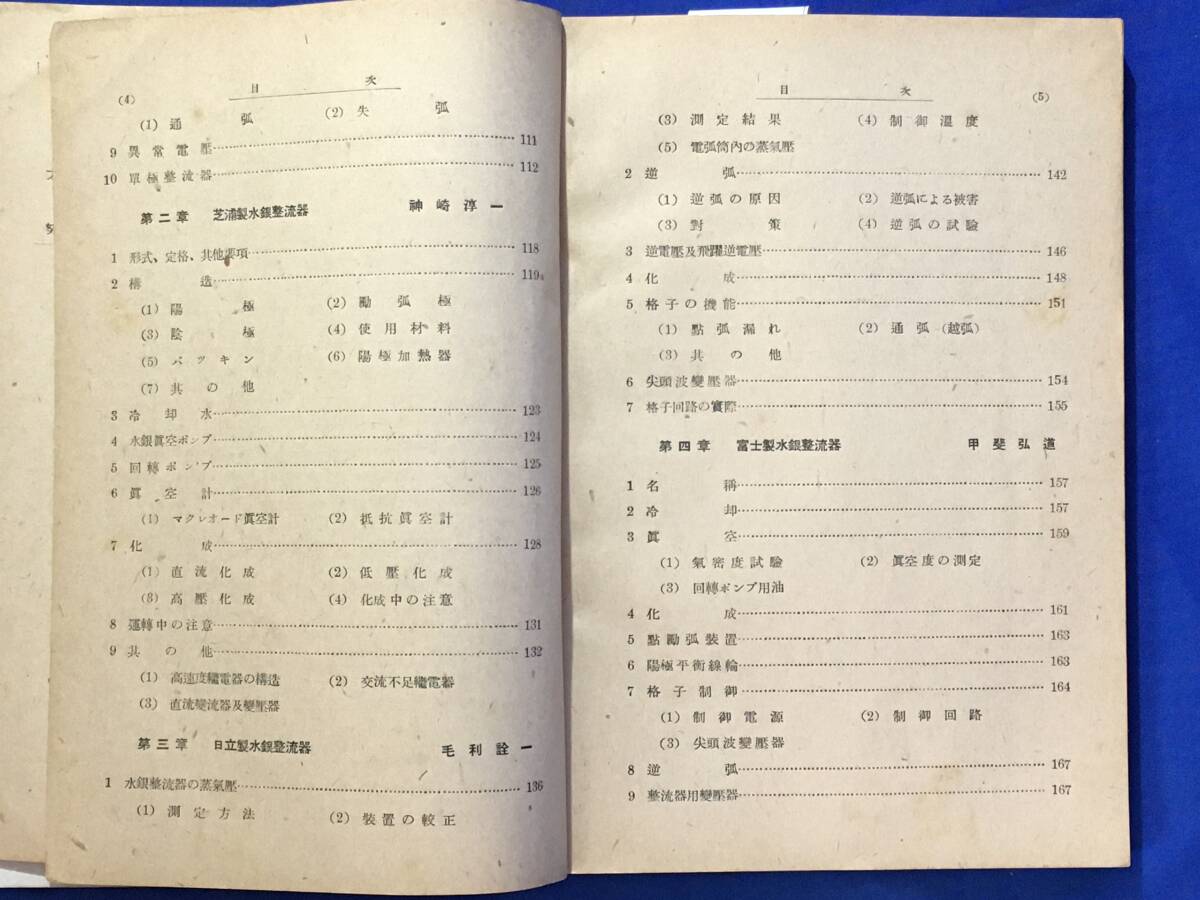 (4) 目次
(1) 通弧 (2) 失弧
9 異常電壓 111
10 單極整流器 112
第二章 芝浦製水銀整流器 神崎淳一
1 形式、定格、其他要項 118
2 構造 119
(1) 陽極 (2) 勵弧極
(3) 陰極 (4) 使用材料
(5) パツキン (6) 陽極加熱器
(7) 其の他
3 冷却水 123
4 水銀眞空ポンプ 124
5 回轉ポンプ 125
6 眞空計 126
(1) マクレオード眞空計 (2) 抵抗眞空計
7 化成 128
(1) 直流化成 (2) 低壓化成
(3) 高壓化成 (4) 化成中の注意
8 運轉中の注意 131
9 其の他 132
(1) 高速度繼電器の構造 (2) 交流不足繼電器
(3) 直流變流器及變壓器
第三章 日立製水銀整流器 毛利詮一
1 水銀整流器の蒸氣壓 136
(1) 測定方法 (2) 裝置の較正
目次 (5)
(3) 測定結果 (4) 制御溫度
(5) 電弧筒內の蒸氣壓
2 逆弧 142
(1) 逆弧の原因 (2) 逆弧による被害
(3) 對策 (4) 逆弧の試驗
3 逆電壓及飛躍逆電壓 146
4 化成 148
5 格子の機能 151
(1) 點弧漏れ (2) 通弧(越弧)
(3) 其の他
6 尖頭波變壓器 154
7 格子回路の實際 155
第四章 富士製水銀整流器 甲斐弘道
1 名稱 157
2 冷却 157
3 眞空 159
(1) 氣密度試驗 (2) 眞空度の測定
(3) 回轉ポンプ用油
4 化成 161
5 點勵弧裝置 163
6 陽極平衡線輪 163
7 格子制御 164
(1) 制御電源 (2) 制御回路
(3) 尖頭波變壓器
8 逆弧 167
9 整流器用變壓器 167